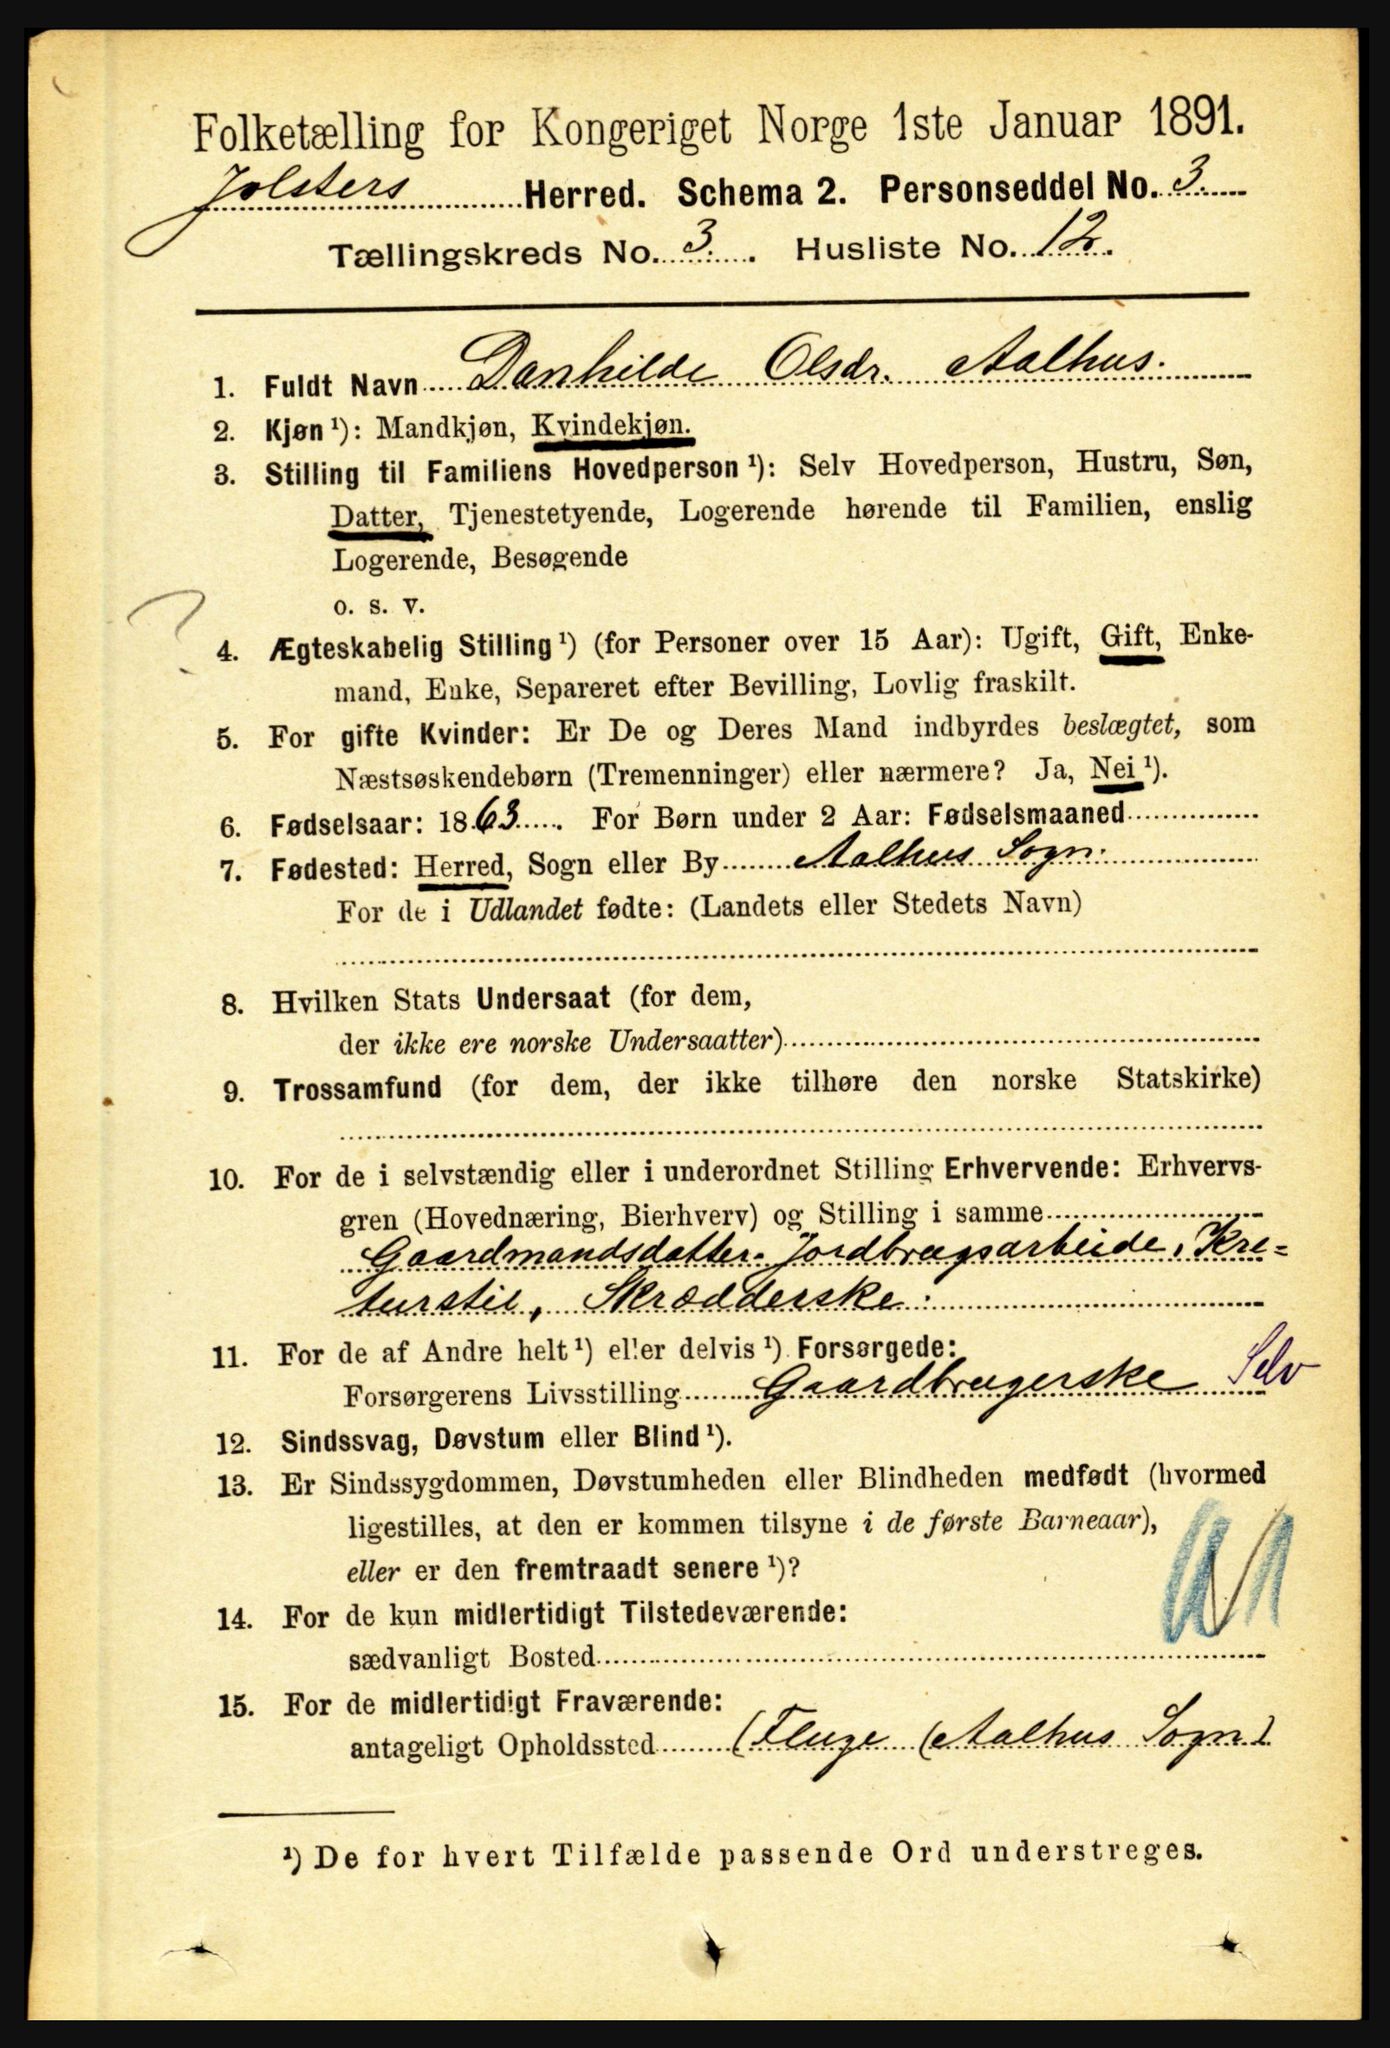 Folketælling for Kongeriget Norge 1ste Januar 1891.
Jølsters Herred. Schema 2. Personseddel No. 3.
Tællingskreds No. 3. Husliste No. 12.
1. Fuldt Navn Danhilde Olsdr. Aalhus.
2. Kjøn ¹): Mandkjøn, Kvindekjøn.
3. Stilling til Familiens Hovedperson ¹): Selv Hovedperson, Hustru, Søn,
Datter, Tjenestetyende, Logerende hørende til Familien, enslig
Logerende, Besøgende
o. s. v.
?
4. Ægteskabelig Stilling ¹) (for Personer over 15 Aar): Ugift, Gift, Enke-
mand, Enke, Separeret efter Bevilling, Lovlig fraskilt.
5. For gifte Kvinder: Er De og Deres Mand indbyrdes beslægtet, som
Næstsøskendebørn (Tremenninger) eller nærmere? Ja, Nei ¹).
6. Fødselsaar: 1863. For Børn under 2 Aar: Fødselsmaaned
7. Fødested: Herred, Sogn eller By Aalhus Sogn.
For de i Udlandet fødte: (Landets eller Stedets Navn)
8. Hvilken Stats Undersaat (for dem,
der ikke ere norske Undersaatter)
9. Trossamfund (for dem, der ikke tilhøre den norske Statskirke)
10. For de i selvstændig eller i underordnet Stilling Erhvervende: Erhvervs-
gren (Hovednæring, Bierhverv) og Stilling i samme
Gaardmandsdatter. Jordbrugsarbeide, Kre=
turstel, Skrædderske.
11. For de af Andre helt ¹) eller delvis ¹) Forsørgede:
Forsørgerens Livsstilling Gaardbrugerske Selv
12. Sindssvag, Døvstum eller Blind ¹).
13. Er Sindssygdommen, Døvstumheden eller Blindheden medfødt (hvormed
ligestilles, at den er kommen tilsyne i de første Barneaar),
eller er den fremtraadt senere ¹)?
14. For de kun midlertidigt Tilstedeværende:
sædvanligt Bosted
15. For de midlertidigt Fraværende:
antageligt Opholdssted (Fluge (Aalhus Sogn)
¹) De for hvert Tilfælde passende Ord understreges.